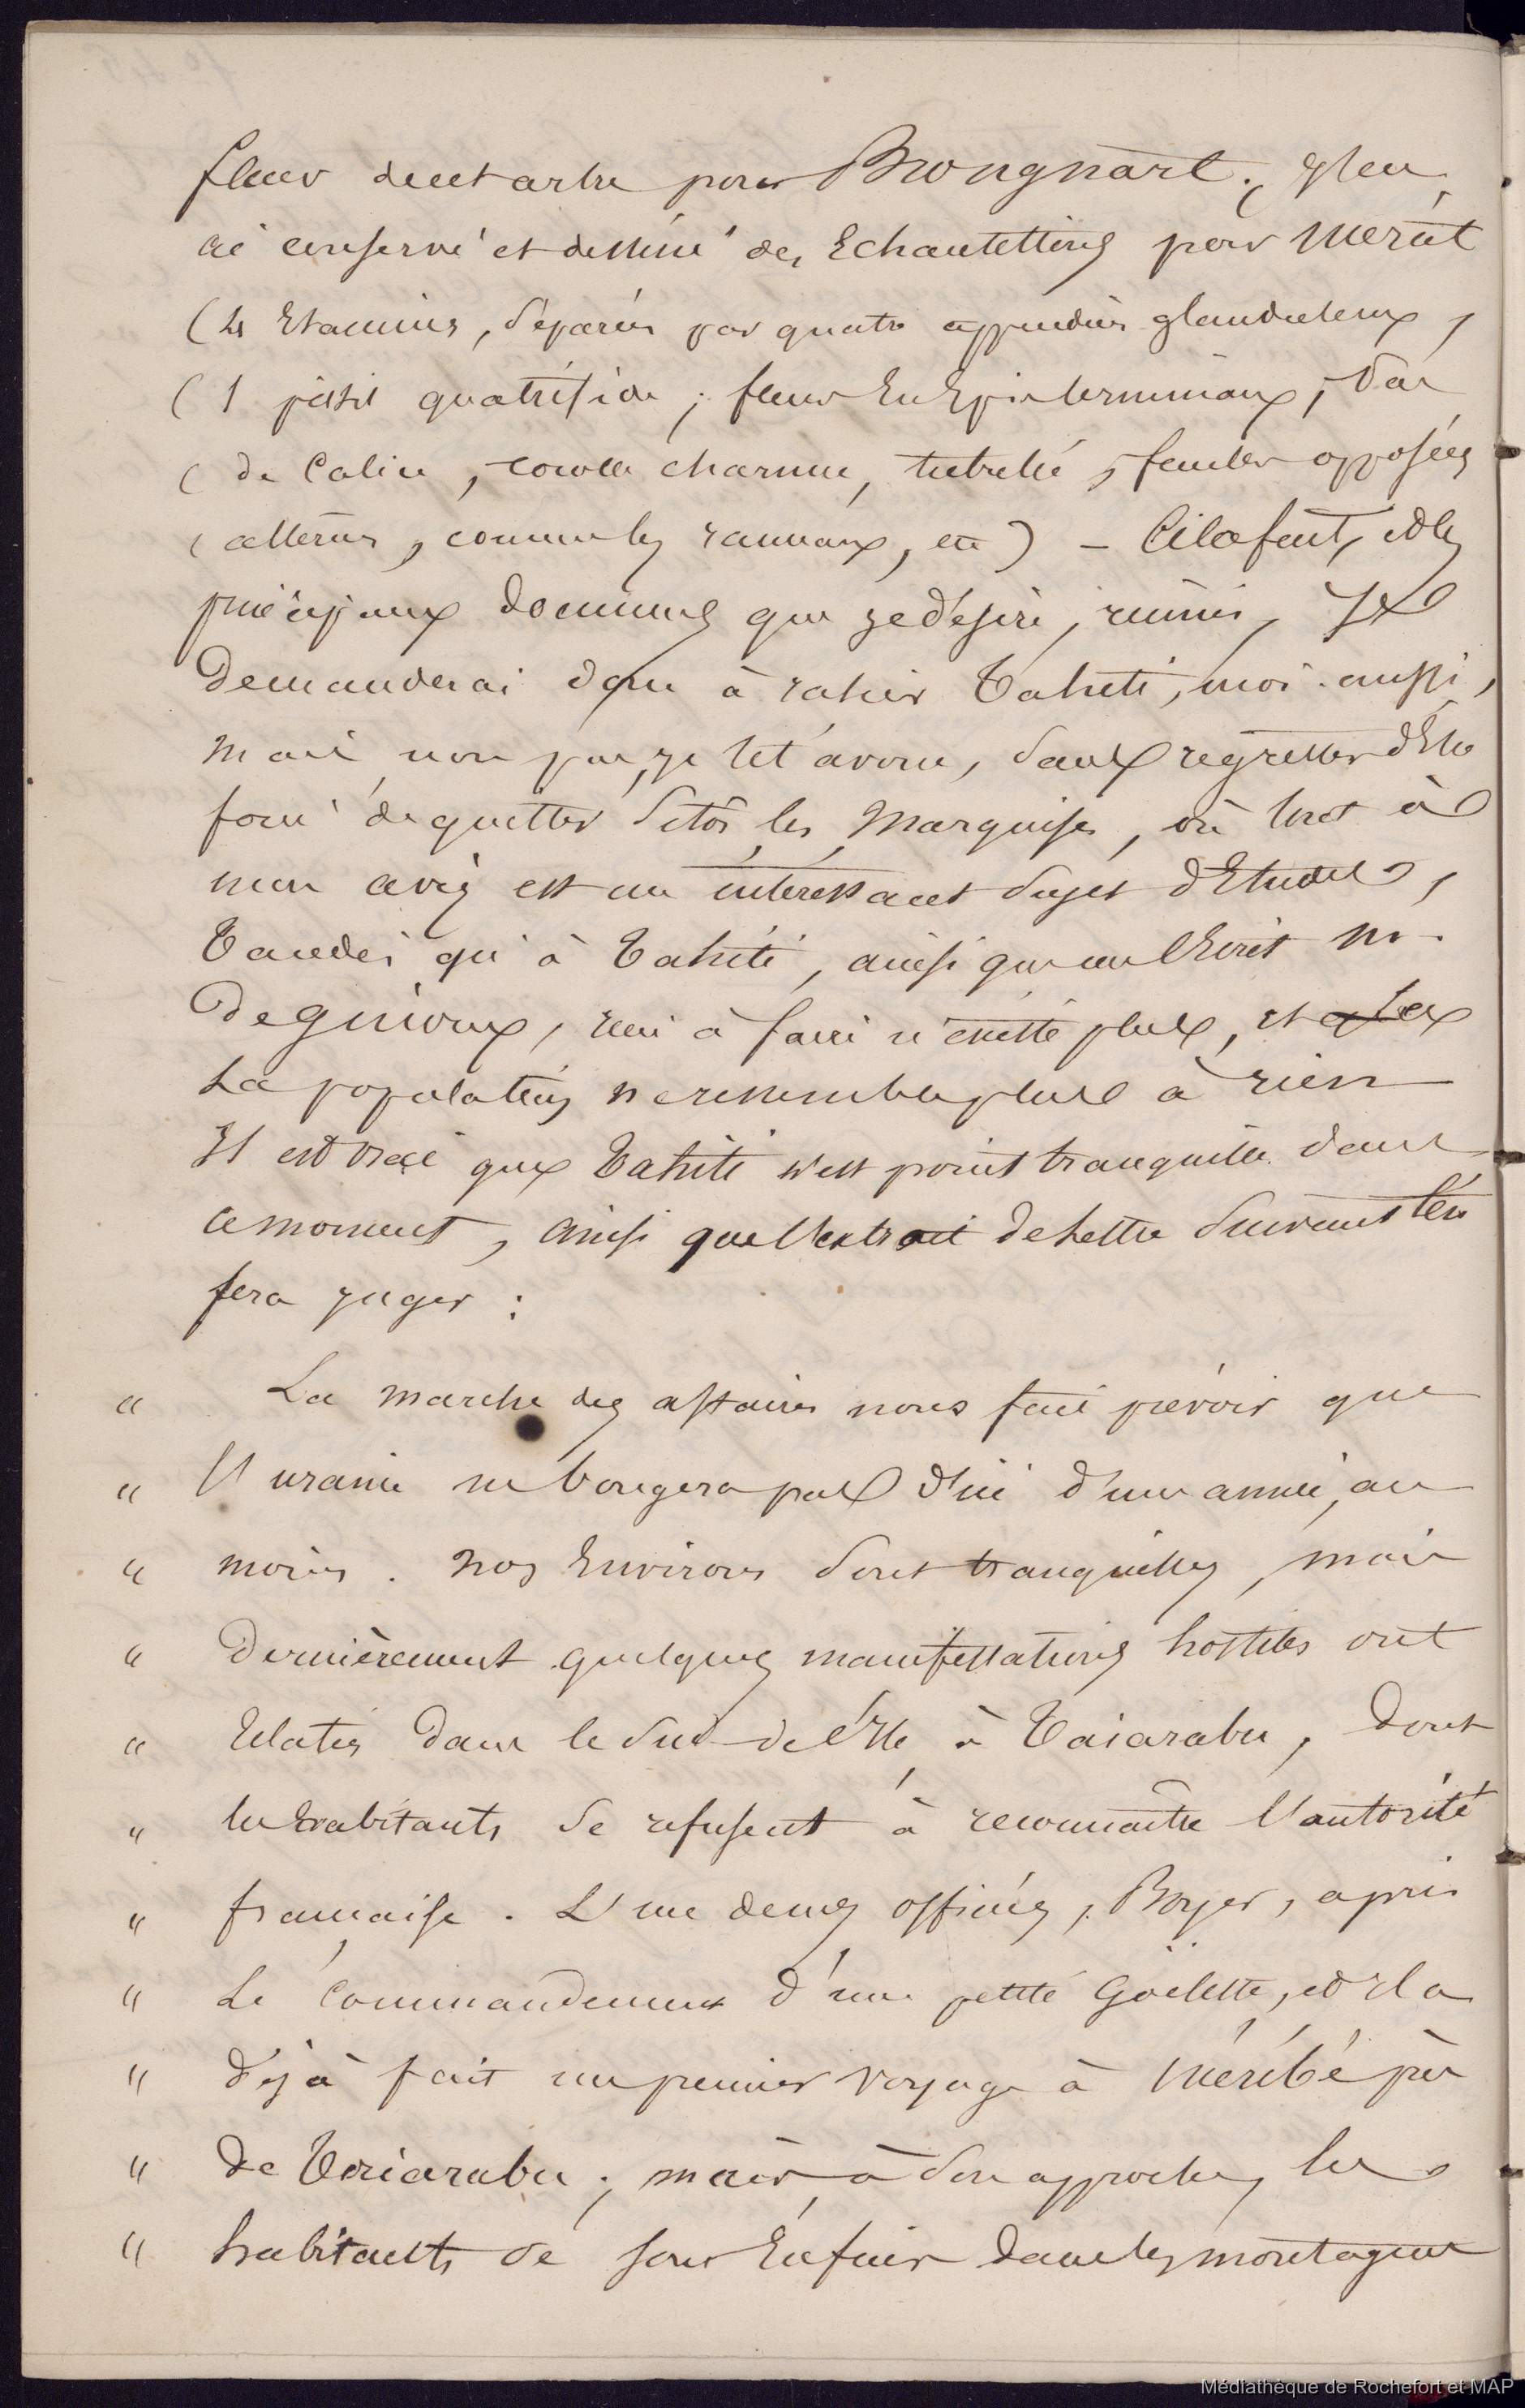 fleurs de cet arbre pour Brongnart ; j'en
ai conservé et dessiné des Echantillons pour Mérat
(4 Etamines, séparées par quatre appendices glanduleux,
( 1 pistil quatrifide ; fleurs en Epis terminaux, pas
( de Calice, corolle charnue, tubulée, feuilles opposées
( alternes, comme les rameaux, etc ) – Cela fait, et les
principaux documens que je désire, réunis, Je
Demanderai donc à rallier Tahiti, moi aussi,
mais non pas, je te l'avoue, sans regretter d'Etre
forcé de quitter sitôt les Marquises, où tout à
mon avis est un intéressant sujet d'Etudes,
Tandis qu'à Tahiti, ainsi que me l'écrit Mr.
De Ginoux, rien à faire n'existe plus, et
La population ne ressemble plus à rien
Il est vrai que Tahiti n'est point tranquille dans
ce moment, ainsi que l'extrait de lettre suivant t'en
fera juger :
" La marche des affaires nous fait prévoir que
" l'uranie ne bougera pas d'ici d'une année, au
" moins. Nos Environs sont tranquilles, mais
" Dernièrement quelques manifestations hostiles ont
" Eclatés dans le sud de l'Ile, à Taiarabu, dont
" les habitants se refusent à reconnaître l'autorité
" française. L'un de nos officiers, Boyer, a pris
" Le Commandement d'une petite Goëlette, et Il a
" déjà fait un premier voyage à près
" De Taiarabu ; mais à son approche, les
" habitants se sont Enfuis dans les montagnes
Médiathèque de Rochefort et MAP